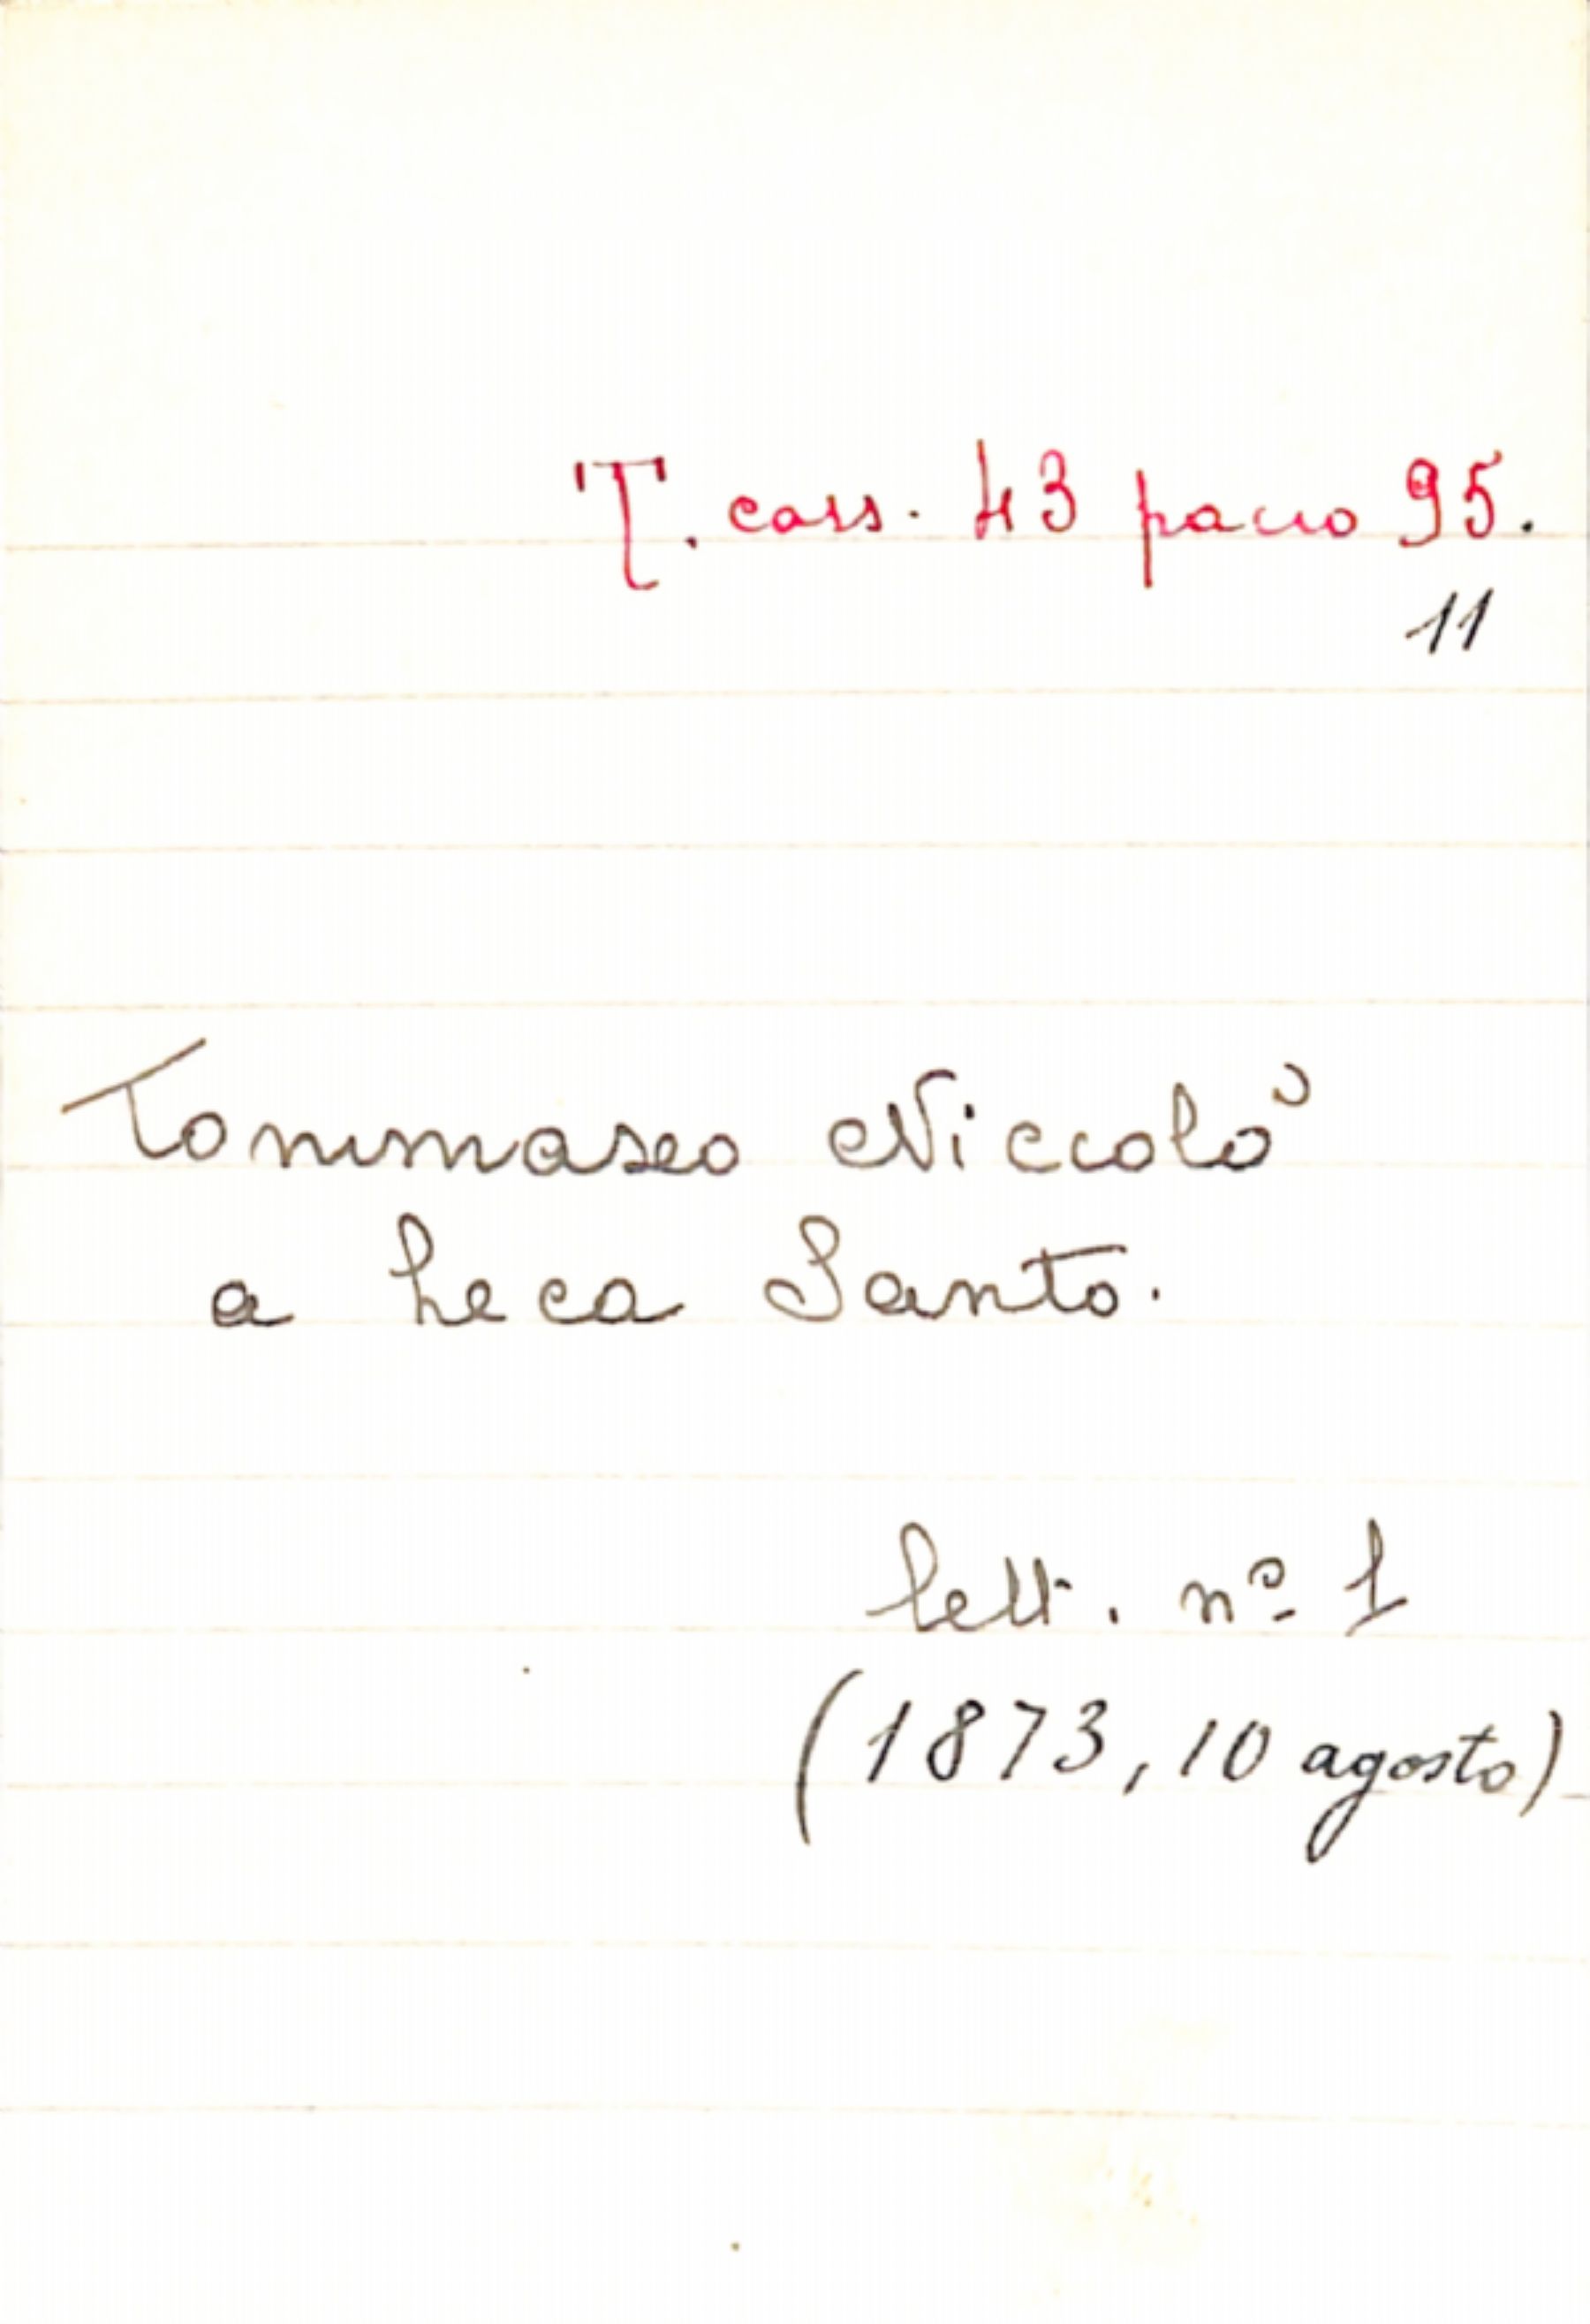 T. cass. 43 pacco 95.
11
Tommaseo Niccolò
a Leca Santo.
lett. nº 1
(1873, 10 agosto)